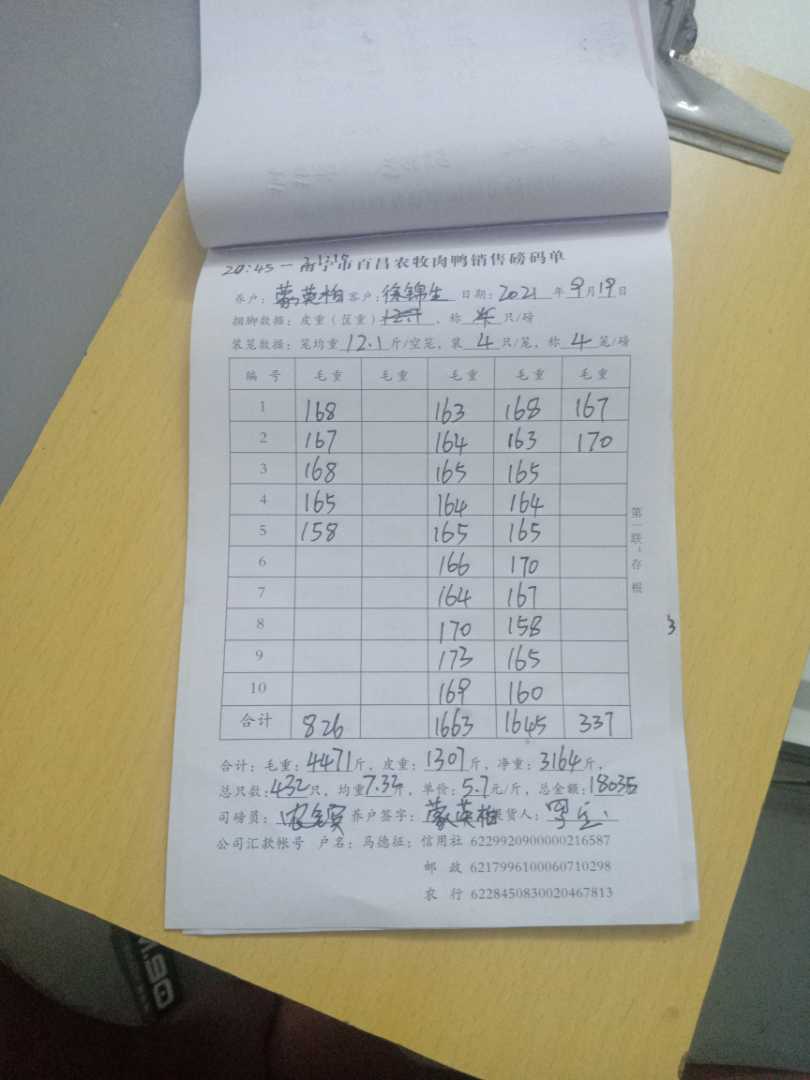 20:45 - 南宁市百昌农牧肉鸭销售磅码单
养户: 蒙英柏 客户: 徐锦生 日期: 2021 年 9 月 19 日
捆脚数据: 皮重(筐重) , 称 只/磅
装笼数据: 笼均重 12.1 斤/空笼, 装 4 只/笼, 称 4 笼/磅
编号 毛重 毛重 毛重 毛重 毛重
1 168 163 168 167
2 167 164 163 170
3 168 165 165
4 165 164 164
5 158 165 165
6 166 170
7 164 167
8 170 158
9 173 165
10 169 160
合计 826 1663 1645 337
第一联:存根
3
合计: 毛重: 4471 斤, 皮重: 1307 斤, 净重: 3164 斤,
总只数: 432 只, 均重 7.33 斤, 单价: 5.7 元/斤, 总金额: 18035
司磅员: 养户签字: 蒙英柏 提货人:
公司汇款帐号 户名: 马德征: 信用社 6229920900000216587
邮政 6217996100060710298
农行 6228450830020467813
M.90